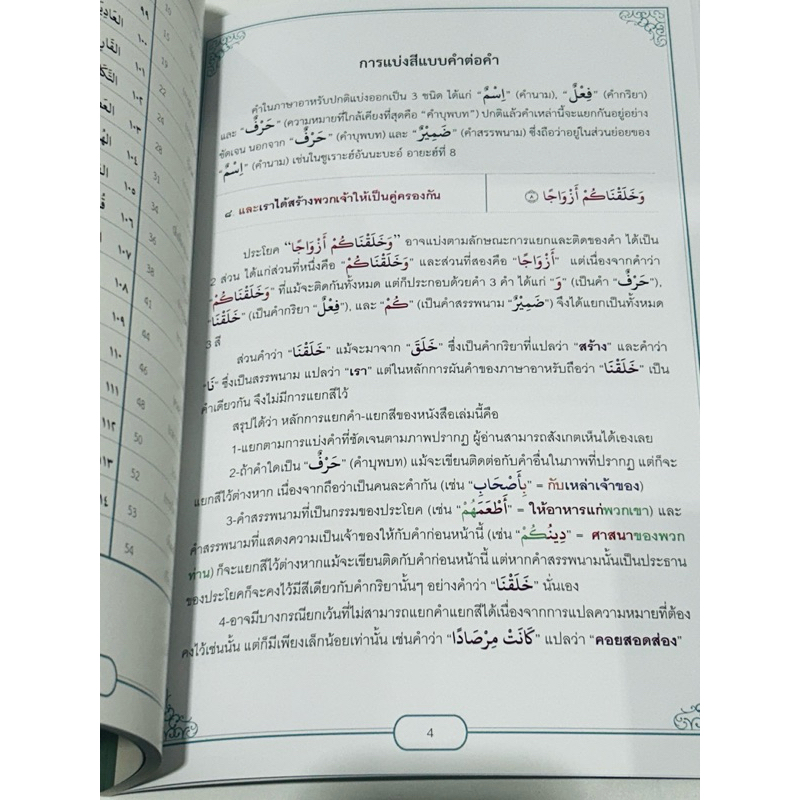 การแบ่งสีแบบคำต่อคำ
คำในภาษาอาหรับปกติแบ่งออกเป็น 3 ชนิด ได้แก่ "اِسْمٌ" (คำนาม), "فِعْلٌ" (คำกริยา)
และ "حَرْفٌ" (ความหมายที่ใกล้เคียงที่สุดคือ "คำบุพบท") ปกติแล้วคำเหล่านี้จะแยกกันอยู่อย่าง
ชัดเจน นอกจาก "حَرْفٌ" (คำบุพบท) และ "ضَمِيْرٌ" (คำสรรพนาม) ซึ่งถือว่าอยู่ในส่วนย่อยของ
"اِسْمٌ" (คำนาม) เช่นในซูเราะฮ์อันนะบะอ์ อายะฮ์ที่ 8
๘. และเราได้สร้างพวกเจ้าให้เป็นคู่ครองกัน
وَخَلَقْنَاكُمْ أَزْوَاجًا ٨
ประโยค "وَخَلَقْنَاكُمْ أَزْوَاجًا" อาจแบ่งตามลักษณะการแยกและติดของคำ ได้เป็น
2 ส่วน ได้แก่ส่วนที่หนึ่งคือ "وَخَلَقْنَاكُمْ" และส่วนที่สองคือ "أَزْوَاجًا" แต่เนื่องจากคำว่า
"وَخَلَقْنَاكُمْ" ที่แม้จะติดกันทั้งหมด แต่ก็ประกอบด้วยคำ 3 คำ ได้แก่ "وَ" (เป็นคำ "حَرْفٌ"),
"خَلَقْنَا" (เป็นคำกริยา "فِعْلٌ"), และ "كُمْ" (เป็นคำสรรพนาม "ضَمِيْرٌ") จึงได้แยกเป็นทั้งหมด
3 สี
ส่วนคำว่า "خَلَقْنَا" แม้จะมาจาก "خَلَقَ" ซึ่งเป็นคำกริยาที่แปลว่า "สร้าง" และคำว่า
"نَا" ซึ่งเป็นสรรพนาม แปลว่า "เรา" แต่ในหลักการผันคำของภาษาอาหรับถือว่า "خَلَقْنَا" เป็น
คำเดียวกัน จึงไม่มีการแยกสีไว้
สรุปได้ว่า หลักการแยกคำ-แยกสีของหนังสือเล่มนี้คือ
1-แยกตามการแบ่งคำที่ชัดเจนตามภาพปรากฏ ผู้อ่านสามารถสังเกตเห็นได้เองเลย
2-ถ้าคำใดเป็น "حَرْفٌ" (คำบุพบท) แม้จะเขียนติดต่อกับคำอื่นในภาพที่ปรากฏ แต่ก็จะ
แยกสีไว้ต่างหาก เนื่องจากถือว่าเป็นคนละคำกัน (เช่น "بِأَصْحَابِ" = กับเหล่าเจ้าของ)
3-คำสรรพนามที่เป็นกรรมของประโยค (เช่น "أَطْعَمَهُمْ" = ให้อาหารแก่พวกเขา) และ
คำสรรพนามที่แสดงความเป็นเจ้าของให้กับคำก่อนหน้านี้ (เช่น "دِينُكُمْ" = ศาสนาของพวก
ท่าน) ก็จะแยกสีไว้ต่างหากแม้จะเขียนติดกับคำก่อนหน้านี้ แต่หากคำสรรพนามนั้นเป็นประธาน
ของประโยคก็จะคงไว้มีสีเดียวกับคำกริยานั้นๆ อย่างคำว่า "خَلَقْنَا" นั่นเอง
4-อาจมีบางกรณียกเว้นที่ไม่สามารถแยกคำแยกสีได้เนื่องจากการแปลความหมายที่ต้อง
คงไว้เช่นนั้น แต่ก็มีเพียงเล็กน้อยเท่านั้น เช่นคำว่า "كَانَتْ مِرْصَادًا" แปลว่า "คอยสอดส่อง"
4